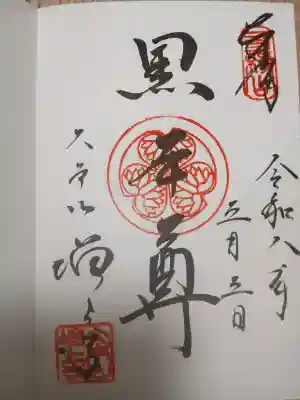 奉拝
令和八年
五月五日
黒本尊
大本山 増上寺